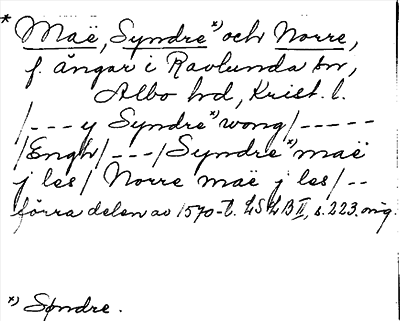 * Maë, Syndre *) och Norre,
f. ängar i Ravlunda sn,
Albo hd, Krist. l.
/--- y Syndre *) wong/-----
/Engh/---/Syndre *) maë
j les/ Norre maë j les/--
förra delen av 1570-t. LSLB II, s. 223. orig.
*) Søndre.